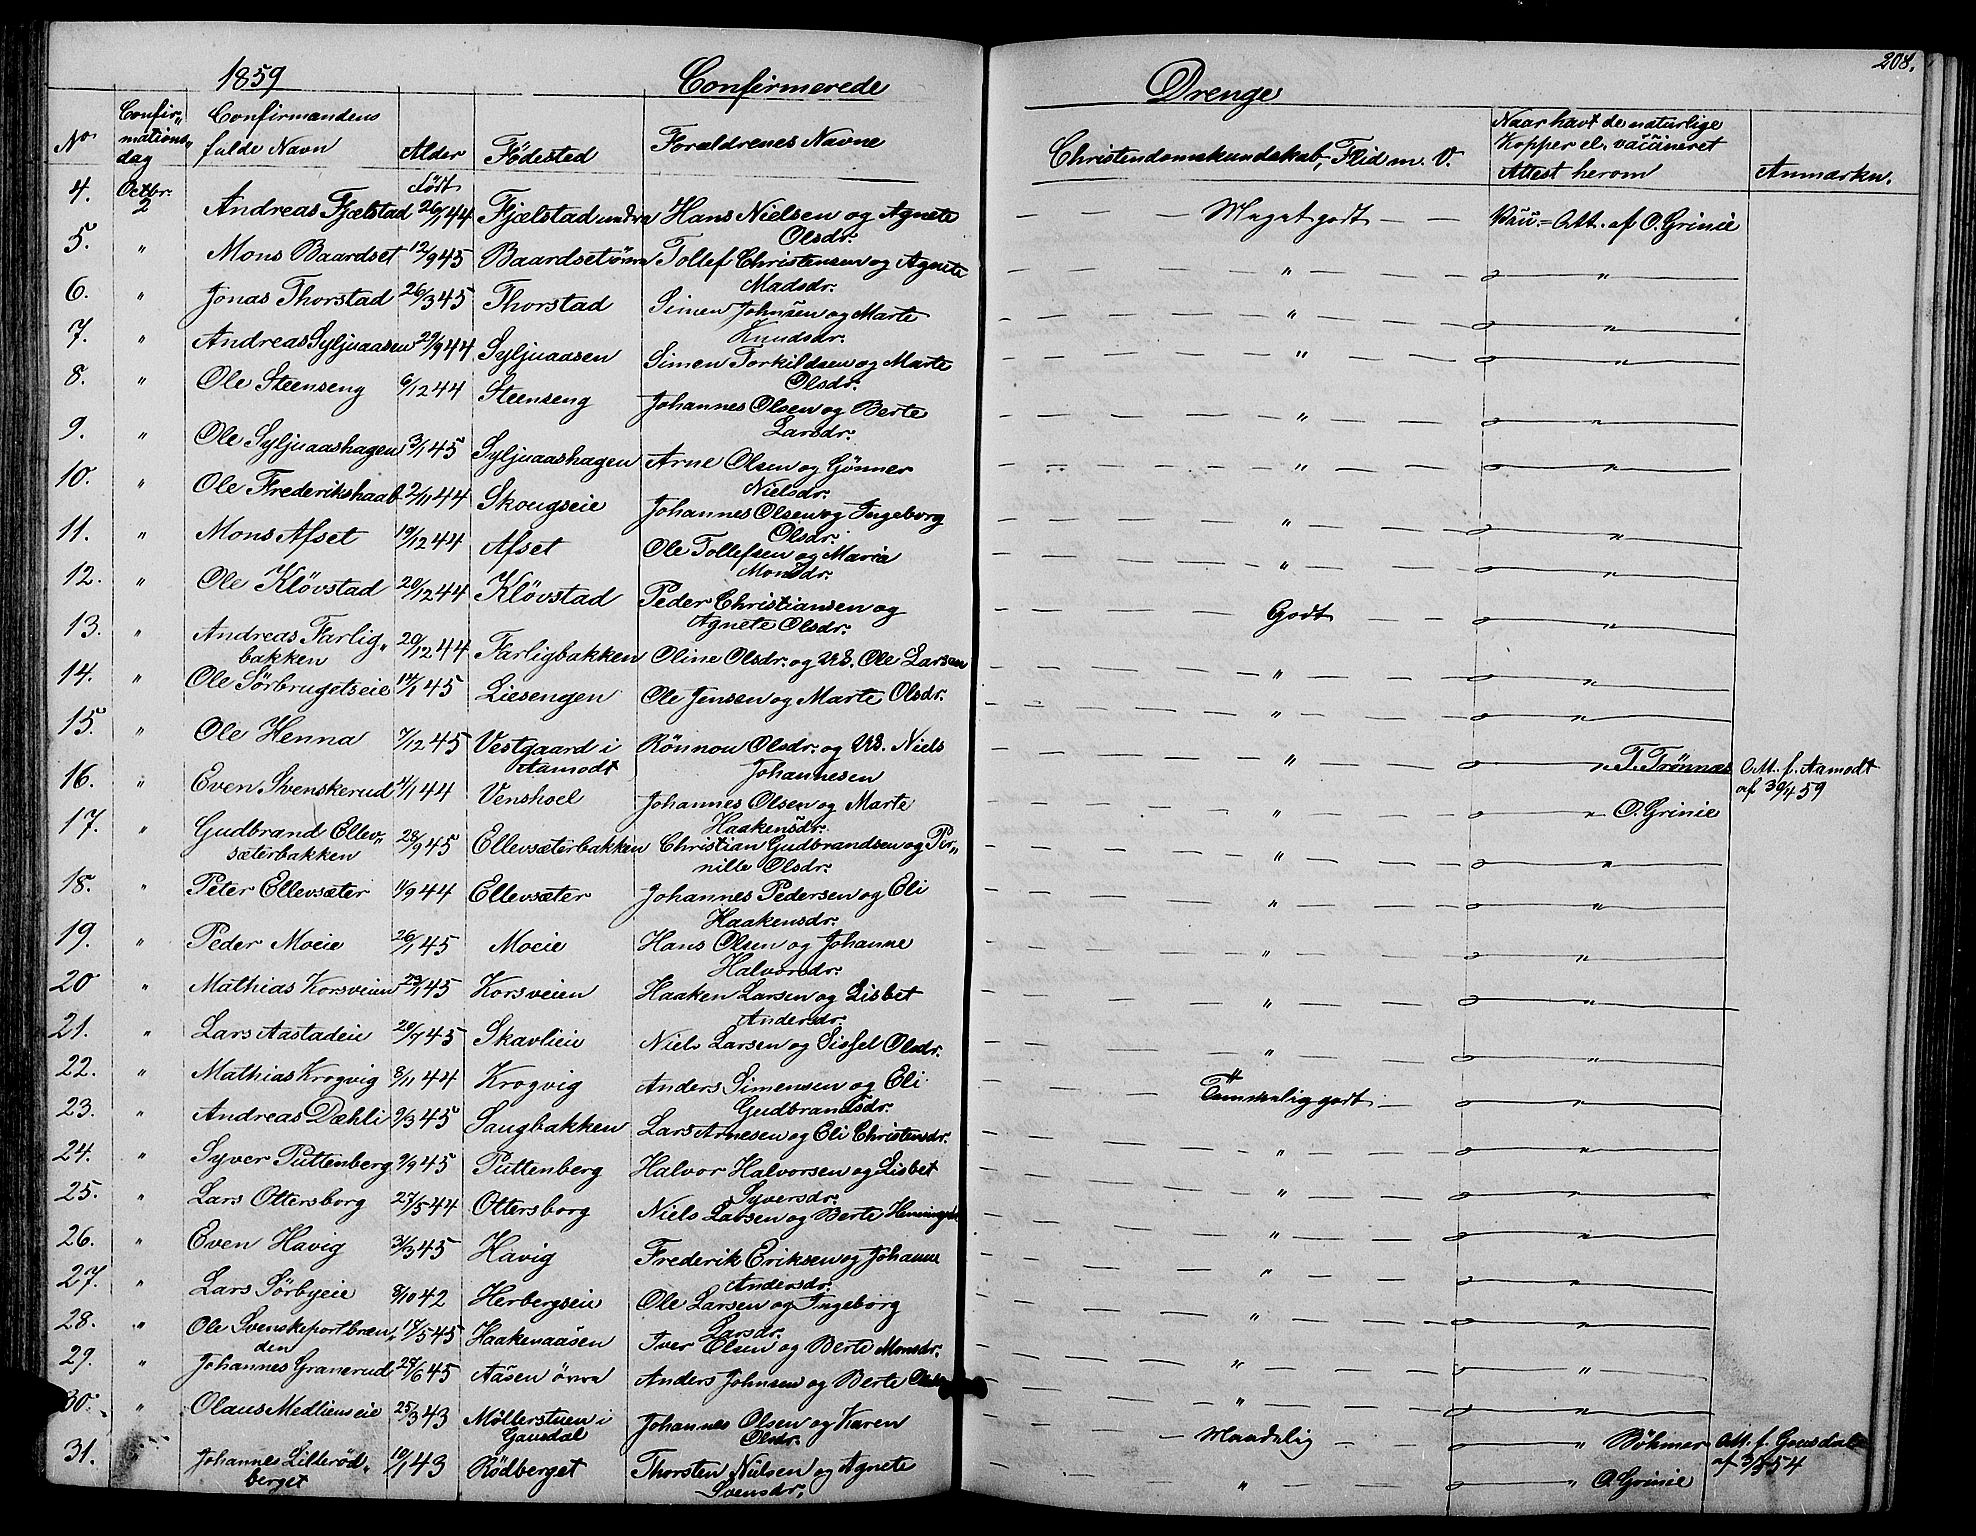 208.
1859 Confirmerede Drenge
No Confir- mations- dag Confirmandens fulde Navn Alder Födested Forældrenes Navne Christendomskundskab, Flid m. V. Naar havt de naturlige Kopper el. vaccineret Attest herom Anmærkn.
4. Octbr. 2 Andreas Fjælstad Födt 26/1 44 Fjælstad nedre Hans Nielsen og Agnete Olsdr. Meget godt Vacc. Att. af O. Grinie
5. " Mons Baardset 12/9 45 Baardset övre Tollef Christensen og Agnete Madsdr. " "
6. " Jonas Thorstad 26/3 45 Thorstad Simen Johnsen og Marte Knudsdr. " "
7. " Andreas Syljuaasen 29/9 44 Syljuaasen Simen Torkildsen og Marte Olsdr. " "
8. " Ole Steenseng 6/12 44 Steenseng Johannes Olsen og Berte Larsdr. " "
9. " Ole Syljuaashagen 3/1 45 Syljuaashagen Arne Olsen og Gönner Nielsdr. " "
10. " Ole Frederikshaab 2/11 44 Skougseie Johannes Olsen og Ingeborg Olsdr. " "
11. " Mons Afset 19/12 44 Afset Ole Tollefsen og Maria Monsdr. " "
12. " Ole Klövstad 20/12 44 Klövstad Peder Christiansen og Agnete Olsdr. Godt "
13. " Andreas Farlig- bakken 20/12 44 Farligbakken Oline Olsdr. og US. Ole Larsen " "
14. " Ole Sörbrugetseie 14/1 45 Liesengen Ole Jensen og Marte Olsdr. " "
15. " Ole Henna 7/12 45 Vestgaard i Aamodt Rönnou Olsdr. og US. Niels Johannesen " " T. Trönnæs Att. f. Aamodt af 30/4 59
16. " Even Svenskerud 4/1 44 Venshoel Johannes Olsen og Marte Haakensdr. " " O. Grinie
17. " Gudbrand Ellev- sæterbakken 28/9 45 Ellevsæterbakken Christian Gudbrandsen og Per- nille Olsdr. " "
18. " Peter Ellevsæter 11/9 44 Ellevsæter Johannes Pedersen og Eli Haakensdr. " "
19. " Peder Moeie 26/1 45 Moeie Hans Olsen og Johanne Halvorsdr. " "
20 " Mathias Korsveien 29/1 45 Korsveien Haaken Larsen og Lisbet Andersdr. " "
21. " Lars Aastadeie 20/7 45 Skavlieie Niels Larsen og Sissel Olsdr. " "
22. " Mathias Krogvig 8/11 44 Krogvig Anders Simensen og Eli Gudbrandsdr. Temmelig godt "
23. " Andreas Dæhli 9/3 45 Saugbakken Lars Arnesen og Eli Christensdr. " "
24. " Syver Puttenberg 9/9 45 Puttenberg Halvor Halvorsen og Lisbet Syversdr. " "
25. " Lars Ottersborg 27/5 44 Ottersborg Niels Larsen og Berte " "
26. " Even Havig 31/3 45 Havig Frederik Eriksen og Johanne Andersdr. " "
27. " Lars Sörbyeie 8/10 42 Herbergseie Ole Larsen og Ingeborg Larsdr. " "
28. " Ole Svenskeportbræn- den 17/5 45 Haakenaasen Iver Olsen og Berte Monsdr. " "
29. " Johannes Granerud 27/6 45 Aasen övre Anders Johnsen og Berte " "
30. " Olaus Medlienseie 25/3 43 Möllerstuen i Gausdal Johannes Olsen og Karen Olsdr. Maadelig " Böhmer Att. f. Gausdal af 3/5 54
31. Johannes Lilleröd- berget 10/1 43 Rödberget Thorsten Nielsen og Agnete Svensdr. " " O. Grinie